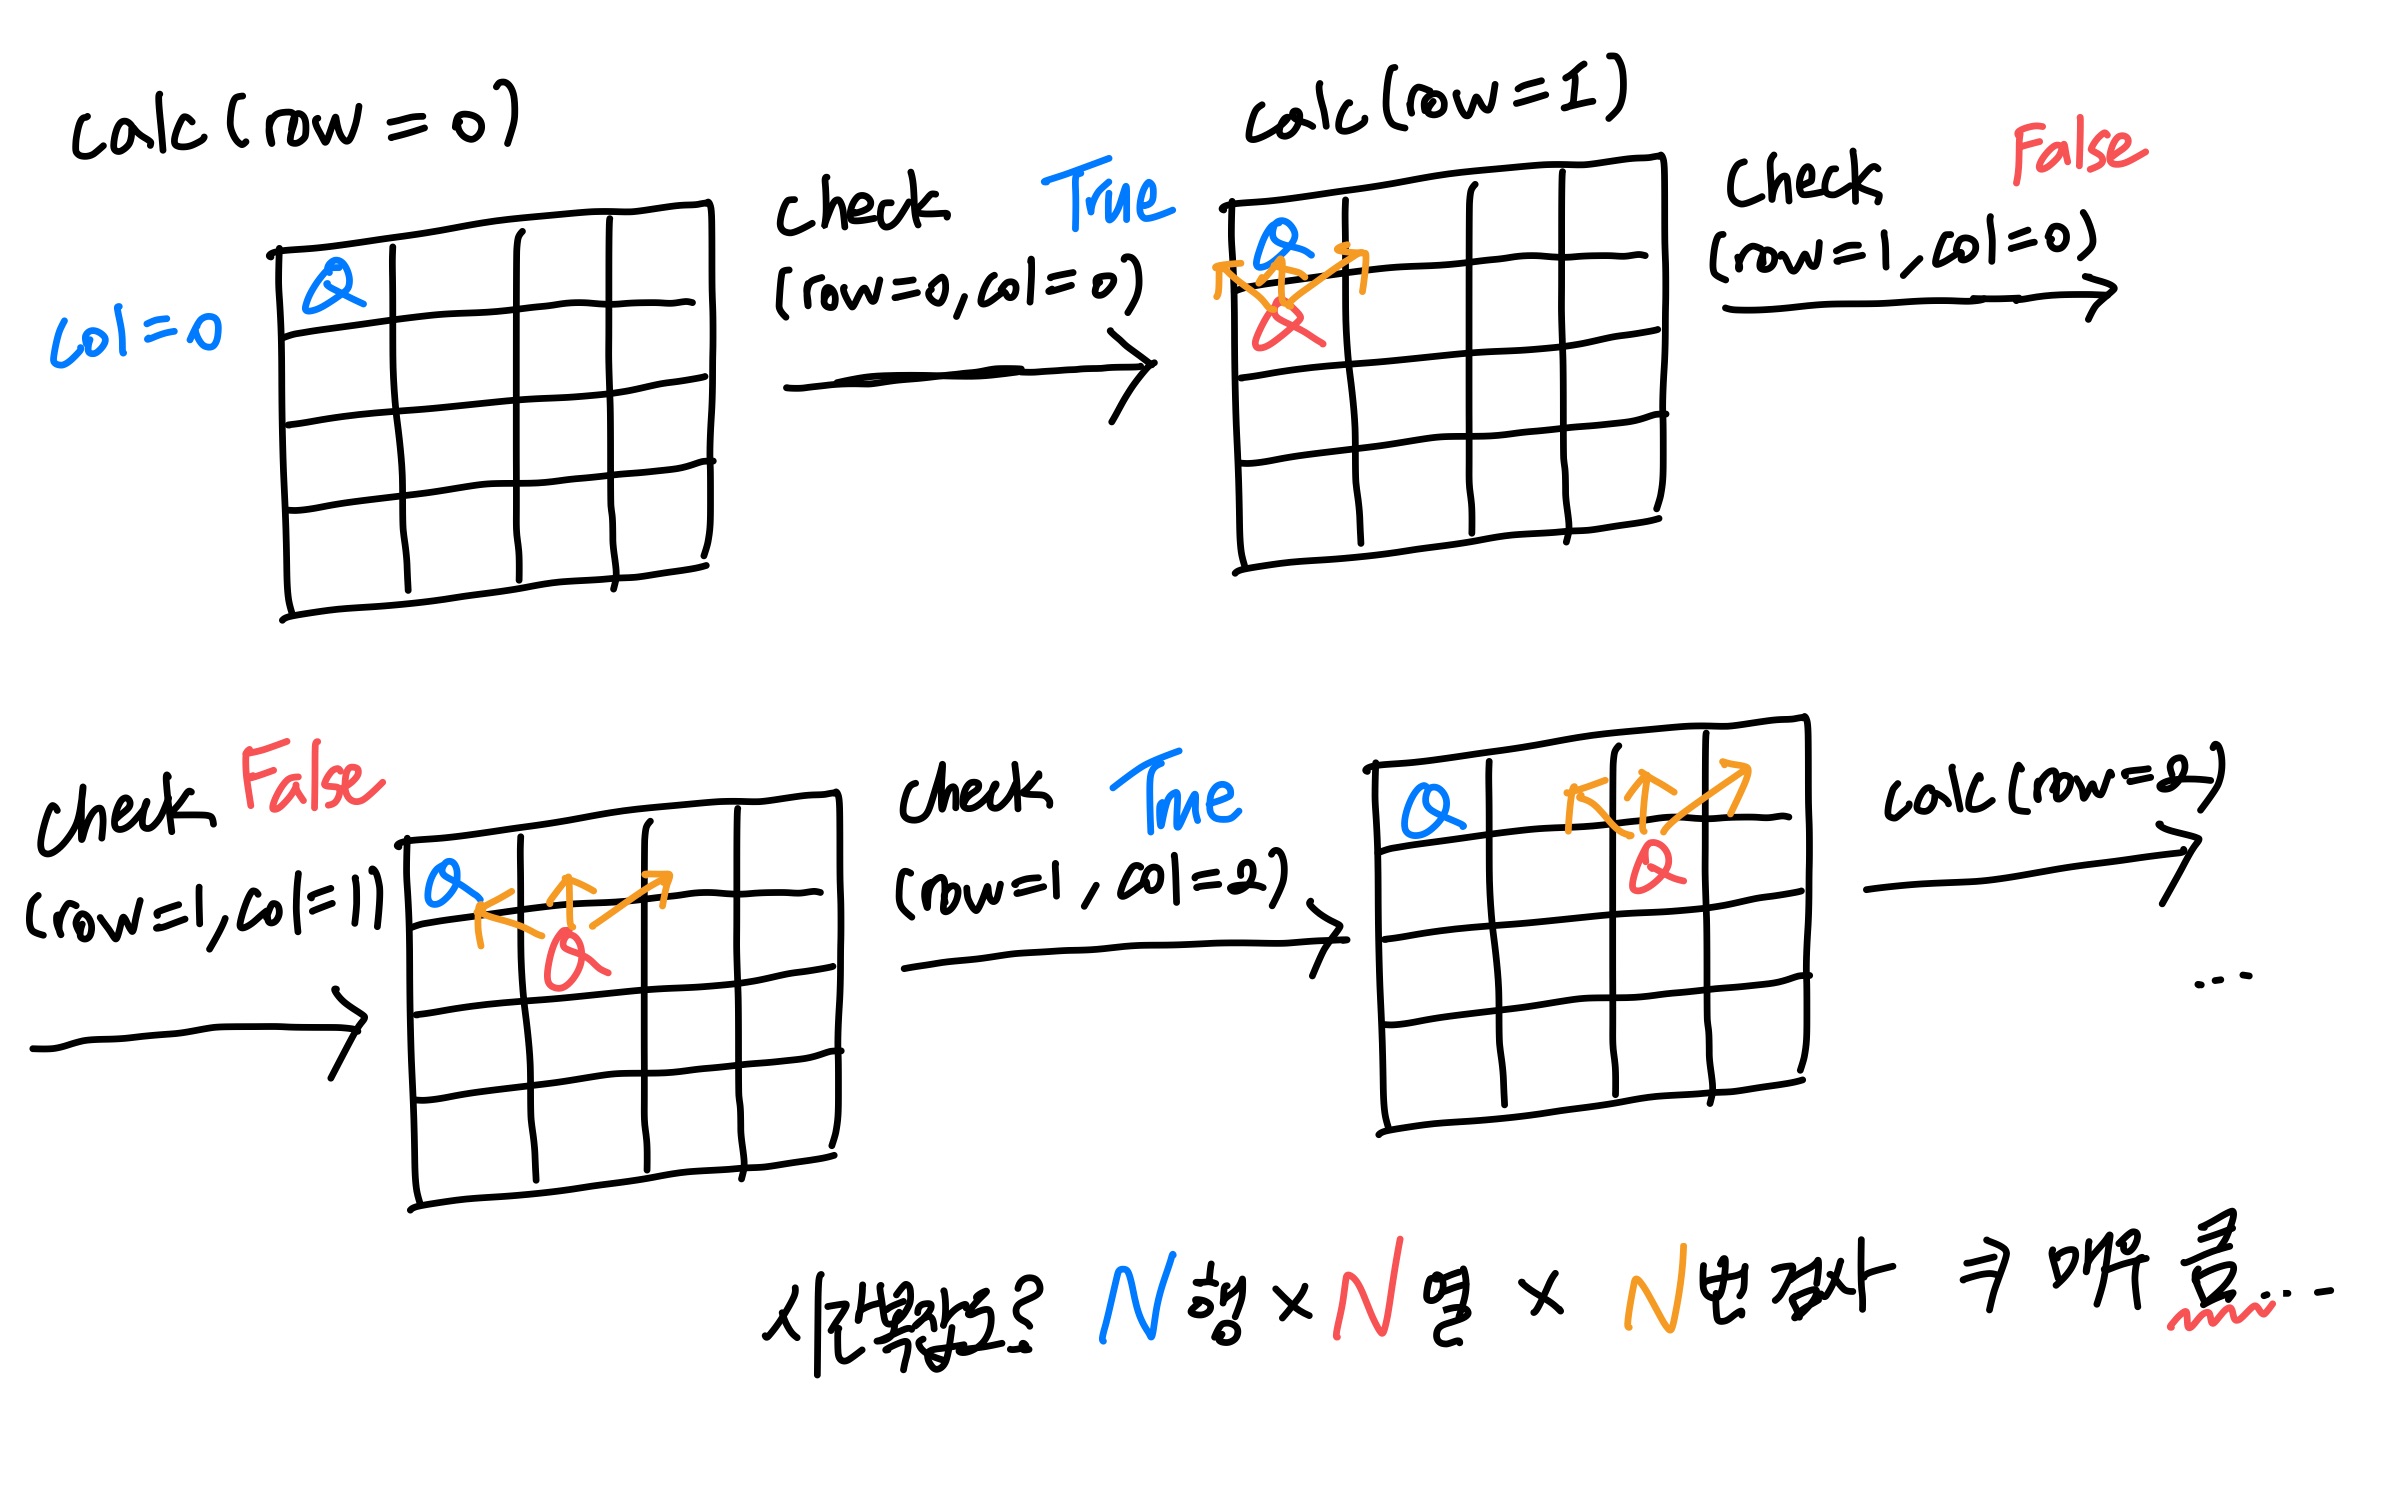 calc(row = 0)
col = 0
Q
check True
(row=0, col=0)
calc(row = 1)
Q
Q
check False
(row=1, col=0)
check False
(row=1, col=1)
Q
Q
check True
(row=1, col=2)
Q
Q
calc(row=2)
....
시간복잡도? N x N x N ⇒